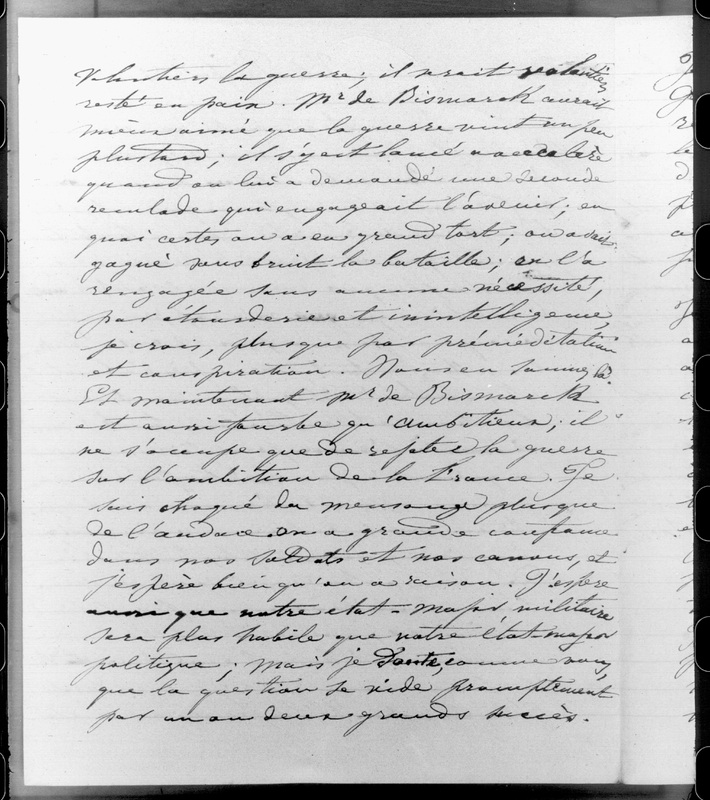 volontiers la guerre; il serait volontiers
resté en paix. Mr de Bismarck aurait
mieux aimé que la guerre vint un peu
plustard; il s'y est lancé
quand on lui a demandé une seconde
reculade qui engageait l'avenir; en
quoi certes on a eu grand tort; on avait
gagné sans bruit la bataille; on l'a
rengagée sans aucune nécessité,
par étourderie et inintelligence,
je crois, plusque par préméditation
et conspiration. Nous en sommes là.
Et maintenant Mr de Bismarck
est aussi fourbe qu'ambitieux; il
ne s'occupe que de rejeter la guerre
sur l'ambition de la France. Je
suis choqué du mensonge plusque
de l'audace. On a grande confiance
dans nos soldats et nos canons, et
j'espère bien qu'on a raison. J'espère
aussi que notre état-major militaire
sera plus habile que notre état-major
politique; mais je doute, comme vous,
que la question se vide promptement
par un ou deux grands succès.